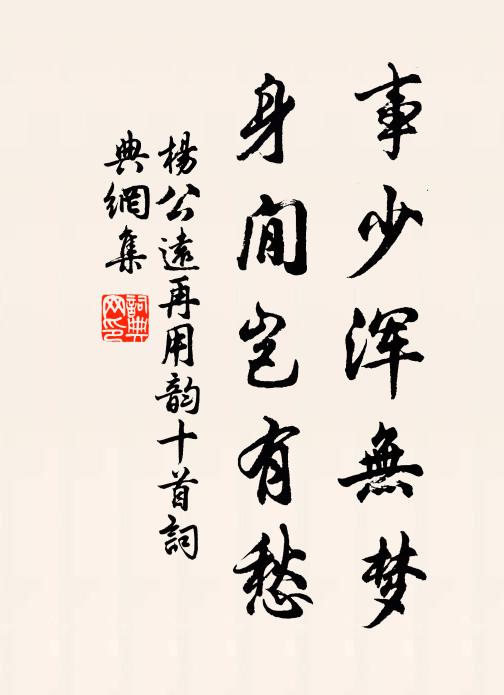 事少浑無梦
身閒岂有愁
楊公遠再用韵十首詞
典網集
詞典
网印